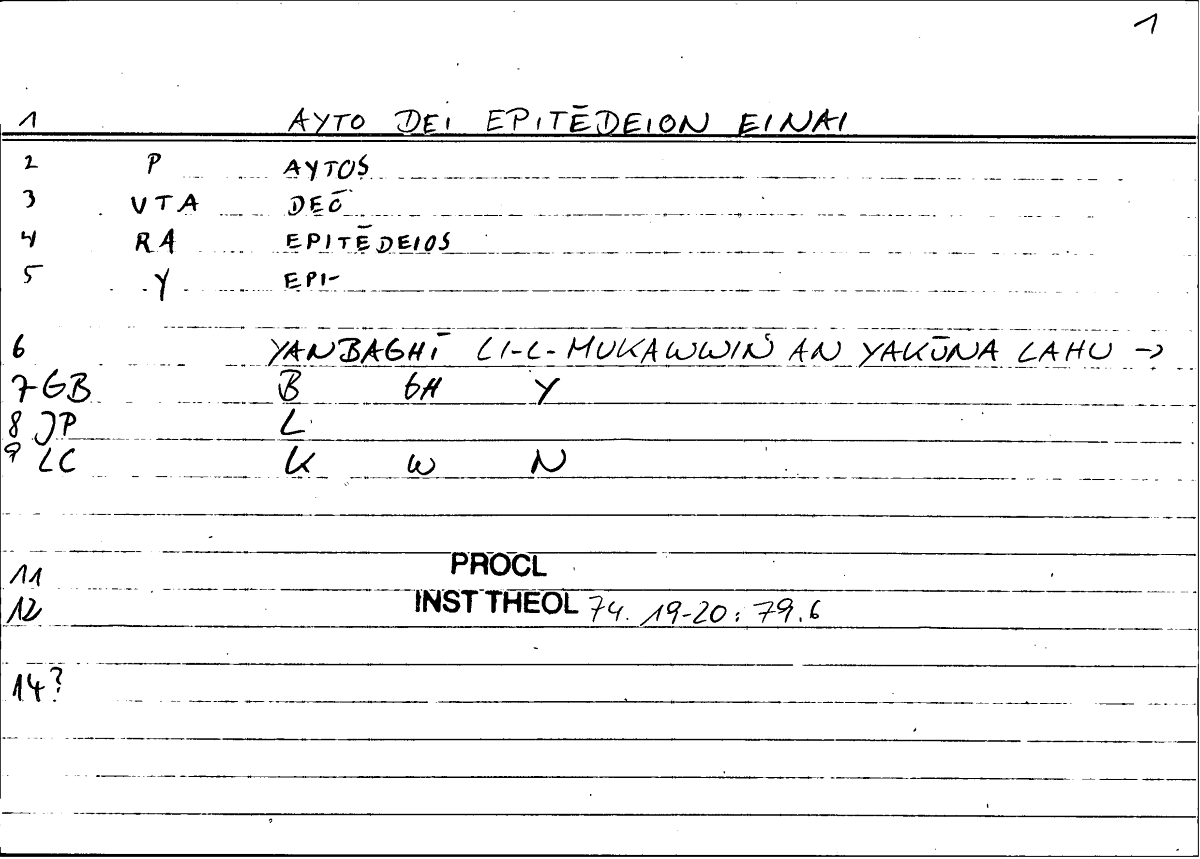 1
1 AYTO DEI EPITĒDEION EINAI
2 P AYTOS
3 VTA DEŌ
4 RA EPITĒDEIOS
5 Y EPI-
6 YANBAGHĪ LI-L-MUKAWWIN AN YAKŪNA LAHU →
7 GB B GH Y
8 JP L
9 LC K W N
11 PROCL
12 INST THEOL 74. 19-20 : 79.6
14?